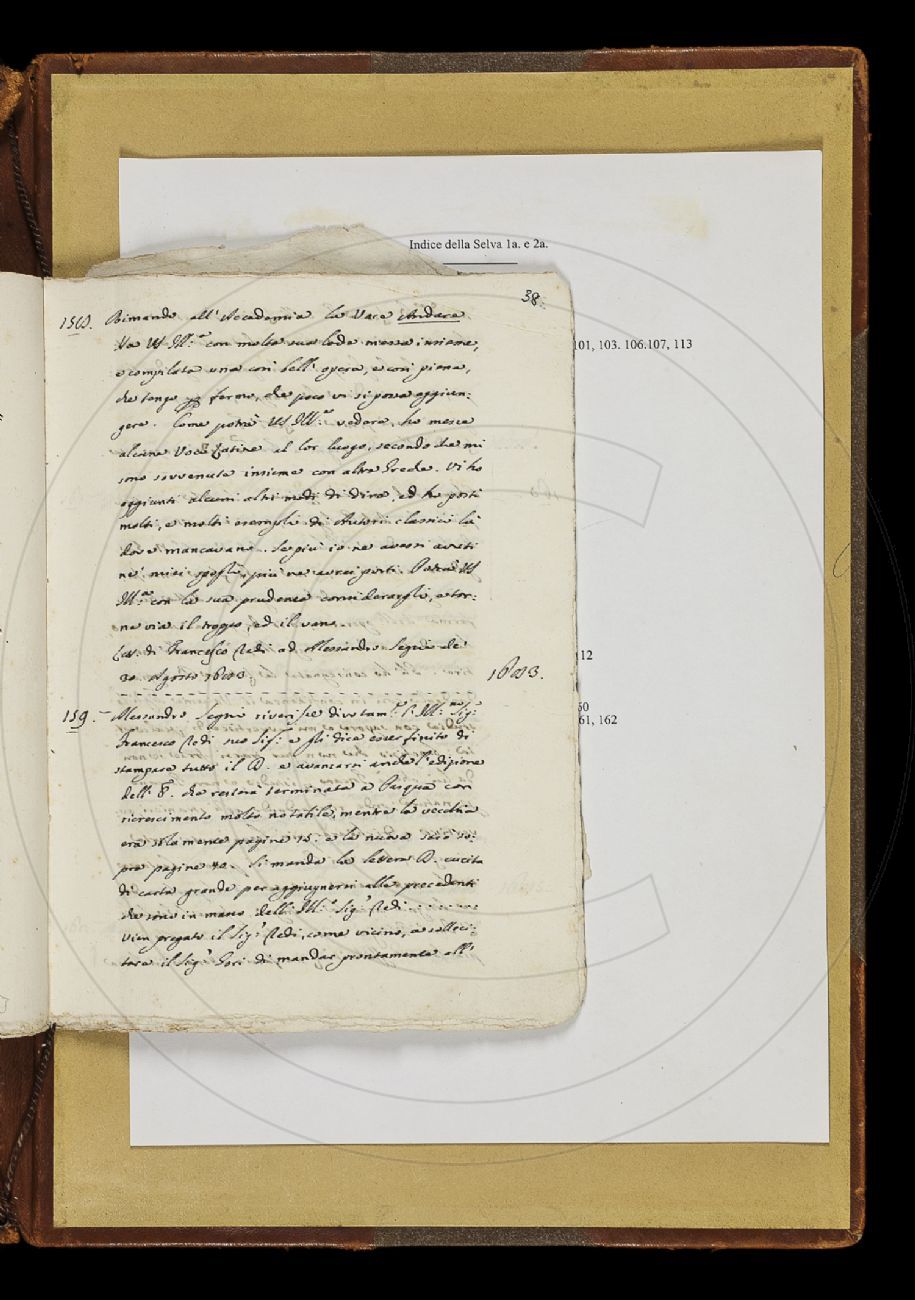 Indice della Selva 1a. e 2a.
38.
101, 103. 106.107, 113
158. Rimando all'Accademia la Voce Andare
Va VS Ill.ma con molta sua lode messa insieme,
e compilata una così bell'opera, e così piena,
che tengo per fermo, che poco vi si possa aggiun:
gere. Come potrà VS Ill.ma vedere, ho messe
alcune Voci Latine al lor luogo, secondo che mi
sono sovvenute insieme con altre Greche. Vi ho
aggiunti alcuni altri modi di dire, ed ho posti
molti, e molti esempli di Autori classici là
dove mancavano. Se più io ne avessi avuti
ne' miei spogli, più ne avrei posti. Potrà VS
Ill.ma con la sua prudenza considerargli, e tor:
ne via il troppo, ed il vano.
Let. di Francesco Redi ad Alessandro Segni de'
30. Agosto 1683
1683.
12
159. Alessandro Segni riverisce divotam.e l'Ill.mo Sig.
Francesco Redi suo Sig.e e gli dice esser finito di
stampare tutto il D. e avanzarsi anche l'edizione
dell' E. che resterà terminata a Pasqua con
ricrescimento molto notabile, mentre la vecchia
era solamente pagine 15. e la nuova sarà so:
pra pagine 40. Si manda la lettera D. cucita
di carta grande per aggiugnersi alle precedenti
che sono in mano dell' Ill.mo Sig.r Redi
Vien pregato il Sig.r Redi, come vicino, a solleci:
tare il Sig.r Gori di mandar prontamente all'
60
61, 162